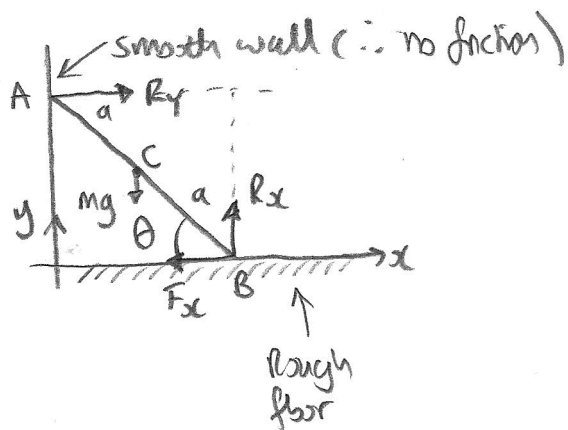 smooth wall (∴ no friction)
A
Ry
a
C
mg
a
Rx
y
θ
x
Fx
B
Rough
floor